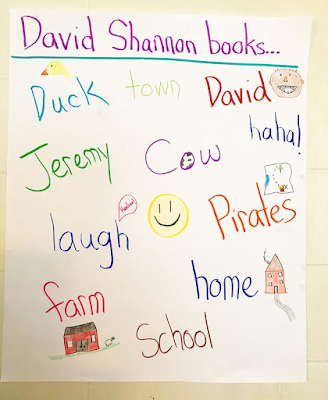 David Shannon books...
Duck town David
haha!
Jeremy Cow
Pirates
laugh
home
farm
School